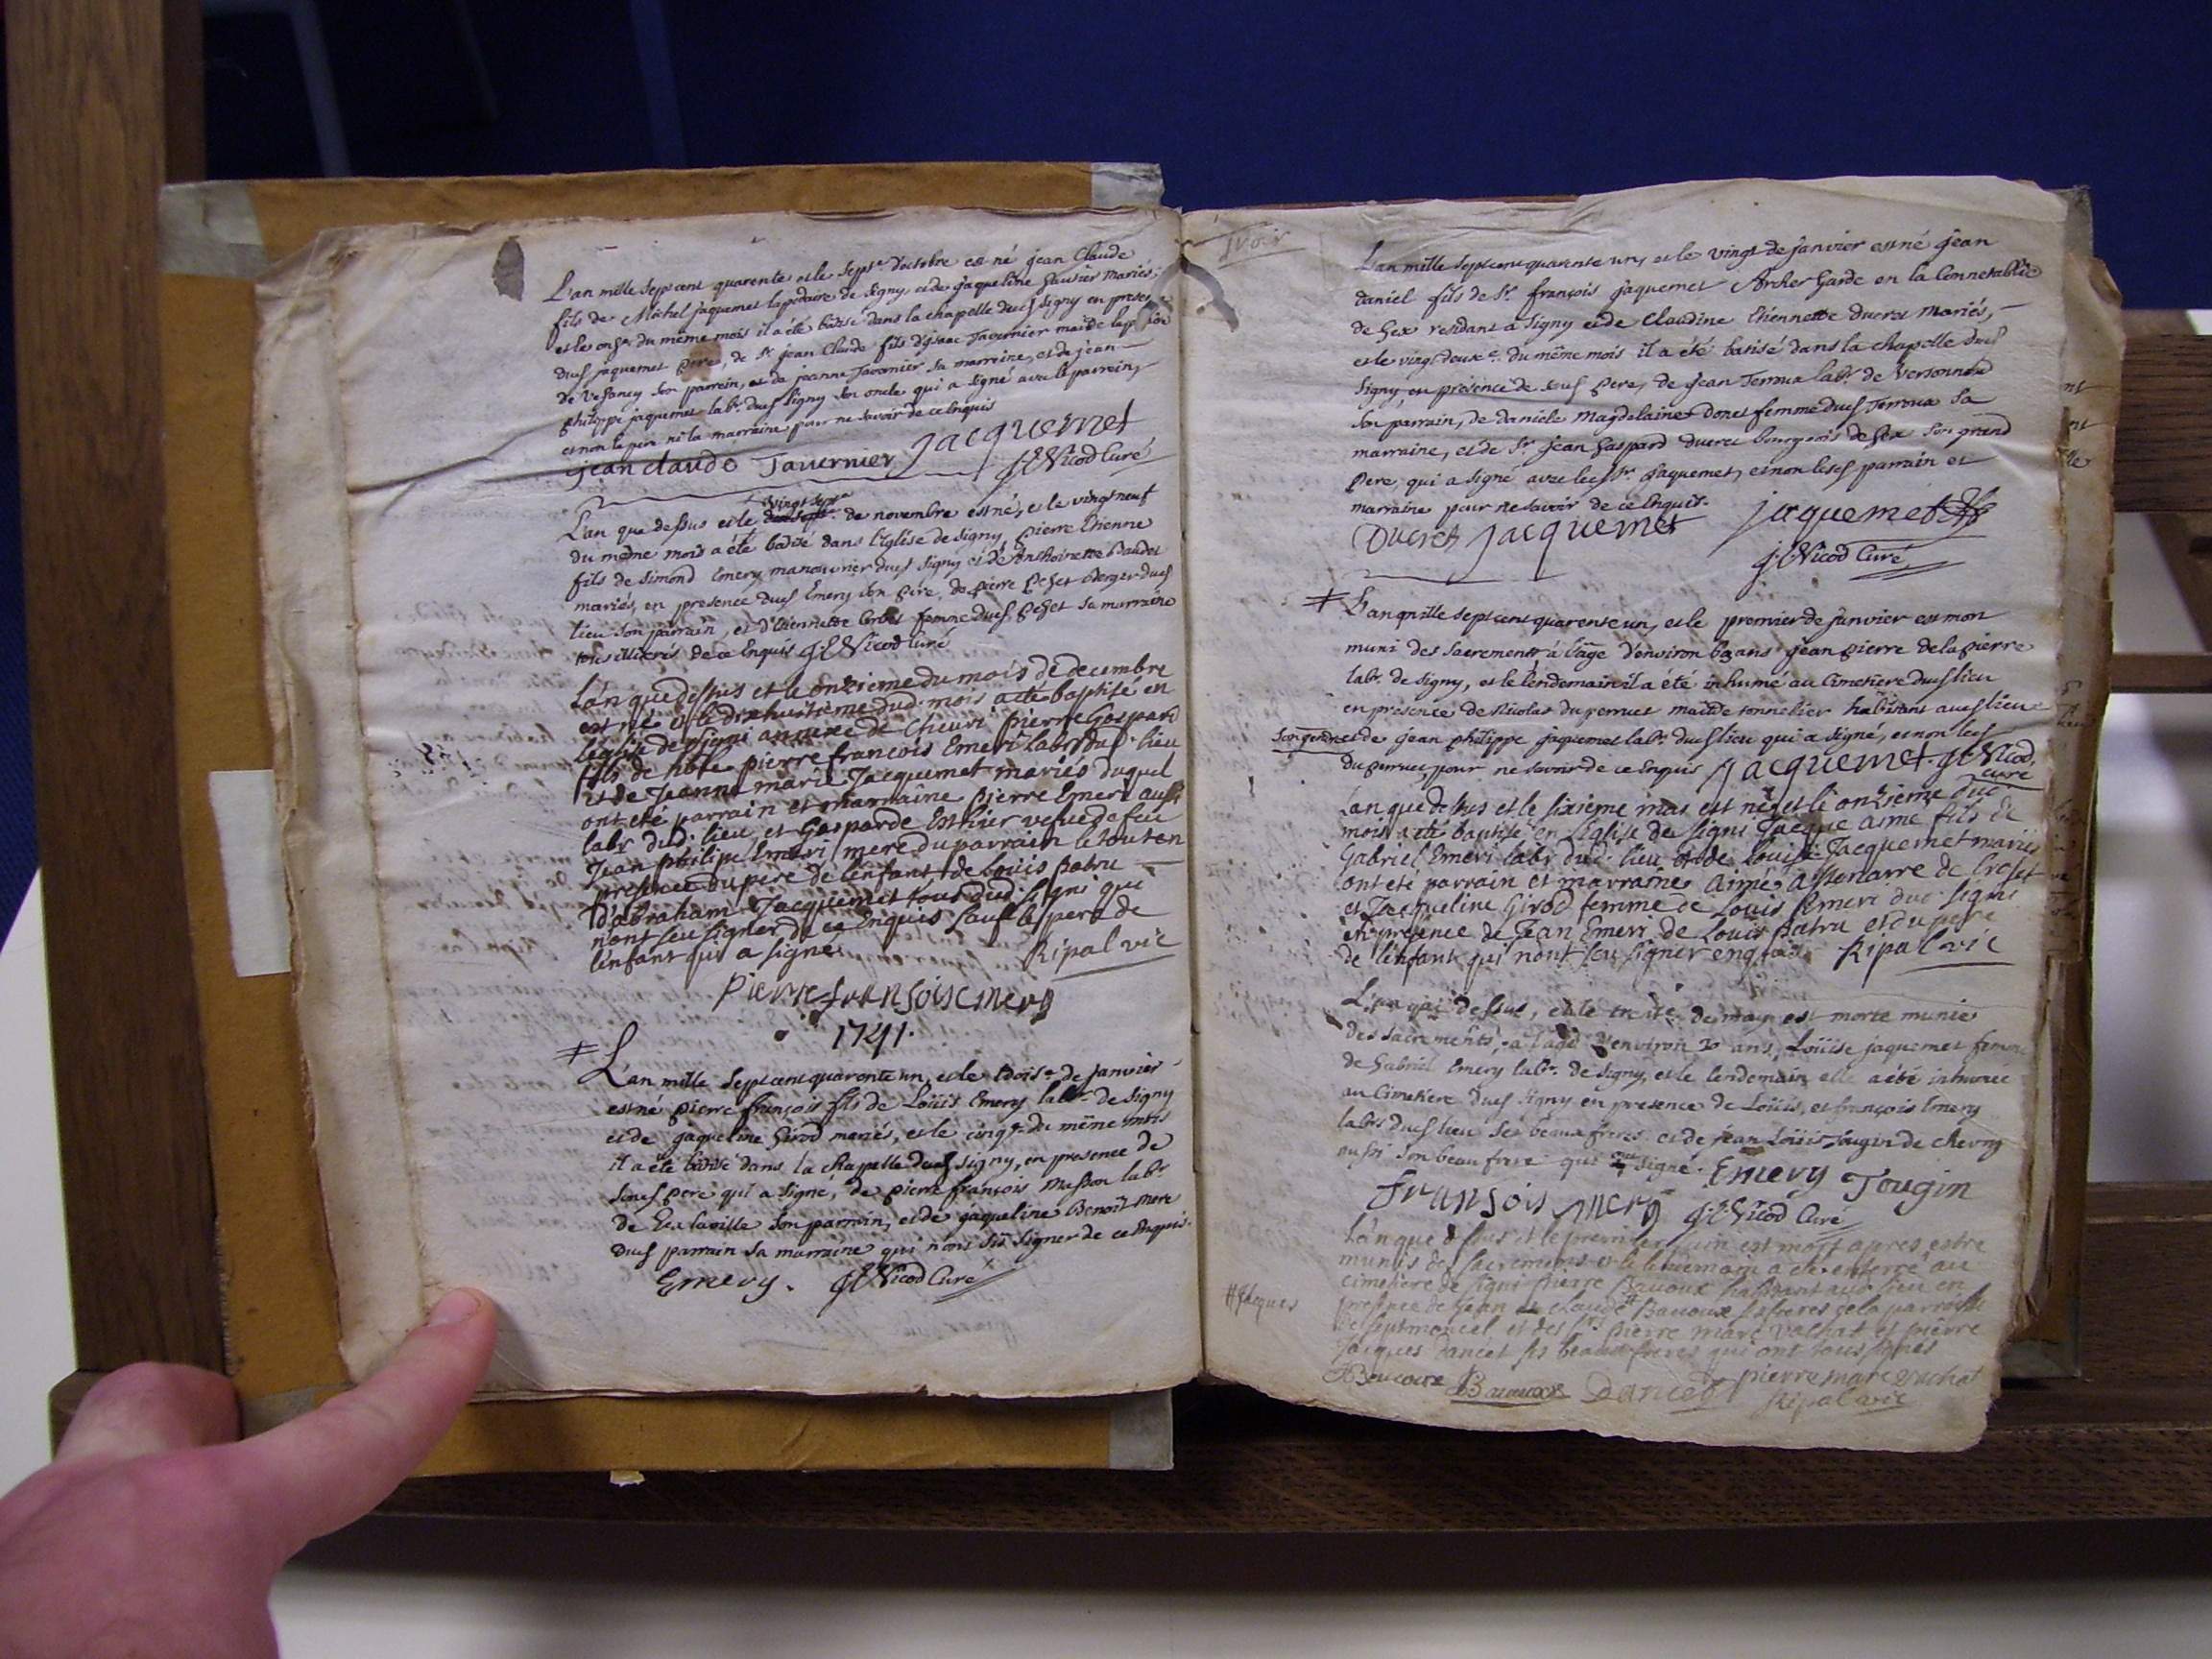 L'an mille sept cent quarente et le septe d'octobre est né jean Claude
fils de Michel jaquemet lapidaire de Signy, et de jaqueline Gautier mariés;
et le onze du même mois il a été batisé dans la chapelle dud Signy en presence
dud jaquemet pere, de Sr jean Claude fils d'isaac Tavernier maître lapidaire
de Vesancy son parrein, et de jeanne Tavernier sa marreine, et de jean
philippe jaquemet labr. dud Signy son oncle qui a signé avec le parrein,
et non le pere ni la marreine pour ne savoir de ce enquis
jean claude Tavernier jacquemet
JCNicod Curé
vingt sept
L'an que dessus et le de novembre est né, et le vingt neuf
du même mois a été batisé dans l'Eglise de Signy, pierre Etienne
fils de Simond Emery manouvrier dud Signy et de Anthoinette Baudet
mariés, en presence dud Emery son pere, de pierre pehet berger dud
lieu son parrain, et d'Etiennette femme dud pehet sa marraine
tous illiterés de ce enquis JCNicod Curé
Lan que dessus et le onzieme du mois de decembre
est né et le dixhuitieme dud. mois a été baptisé en
leglise de signi annexe de Cheuri pierre Gaspard
fils de hble pierre francois Emeri labr dud. lieu
et de Jeanne marie Jacquemet mariés duquel
ont eté parrain et marraine pierre Emeri aussi
labr dud. lieu et Gasparde Esthier veuve de feu
Jean philipe Emeri mere du parrain le tout en
presence du pere de lenfant de Louis patru
d'abraham Jacquemet tous dud signi qui
n'ont seu signer de ce enquis sauf le pere de
lenfant qui a signé Ripal vic
pierre fransois emery
1741.
# L'an mille sept cent quarente un, et le troise de janvier
est né pierre françois fils de Loüis Emery labr de Signy
et de jaqueline Girod mariés, et le cinqe du même mois
il a été batisé dans la chapelle dud Signy, en presence de
sond pere qui a signé, de pierre françois Masson labr
de Gex la ville son parrain, et de jaqueline Benoît mere
dud parrain sa marraine qui n'ont sû signer de ce enquis.
Emery. JCNicod Curé
Voir
L'an mille sept cent quarente un, et le vingt de janvier est né jean
daniel fils de Sr. françois jaquemet Archer Garde en la Connetablie
de Gex residant à Signy et de Claudine Etiennette ducret mariés,
et le vingt deuxe. du même mois il a été batisé dans la chapelle dud
Signy, en présence de sond pere, de jean Terroux labr. de Versonnex
son parrain, de daniele Magdelaine donet femme dud Terroux sa
marraine, et de Sr. jean Gaspard ducret bourgeois de Gex son grand
pere qui a signé avec led Sr. jaquemet, et non lesd parrain et
marraine pour ne savoir de ce enquis.
Ducret jacquemet jaquemet
JCNicod Curé
# L'an mille sept cent quarente un, et le premier de janvier est mort
muni des sacrements à l'âge d'environ ans jean pierre delapierre
labr. de Signy, et le lendemain il a été inhumé au Cimetiere dud lieu
en présence de Nicolas duperruet maître tonnelier habitant aud lieu
son gendre et de jean philippe jaquemet labr. dud lieu qui a signé, et non led
duperruet, pour ne savoir de ce enquis jacquemet. JCNicod
curé
Lan que dessus et le sixieme mas est né et le onzieme dud
mois a eté baptisé en Leglise de signi Jacque aimé fils de
Gabriel Emeri labr dud. lieu et de Louise Jacquemet mariés
ont eté parrain et marraine aimé de Croset
et Jacqueline Girod femme de Louis Emeri dud signi
en presence de Jean Emeri de Louis patru et du pere
de lenfant qui n'ont seu signer enquis Ripal vic
L'an que dessus, et le trese de may est morte munie
des sacrements, à l'age d'environ 30 ans, Loüise jaquemet femme
de Gabriel Emery labr. de Signy, et le lendemain elle a été inhumée
au Cimetiere dud Signy en presence de Loüis, et françois Emery
labrs dud lieu ses beaux freres et de jean Loüis jougin de chevry
aussi son beau frere qui ont signé. Emery Tougin
fransois mery JCNicod Curé
Lan que dessus et le premier juin est mort apres estre
munis des sacremens et le lendemain a eté enterré au
cimetiere de signi pierre Bavoux habitant aud lieu en
presence de Jean claude # Bavoux ses freres de la parroisse
# Jacques
de septmoncel et des srs pierre marc vuchat et pierre
Jacques dancet ses beaux freres qui ont tous signés
Bavoux Dancet pierre marc vuchat
Ripal vic